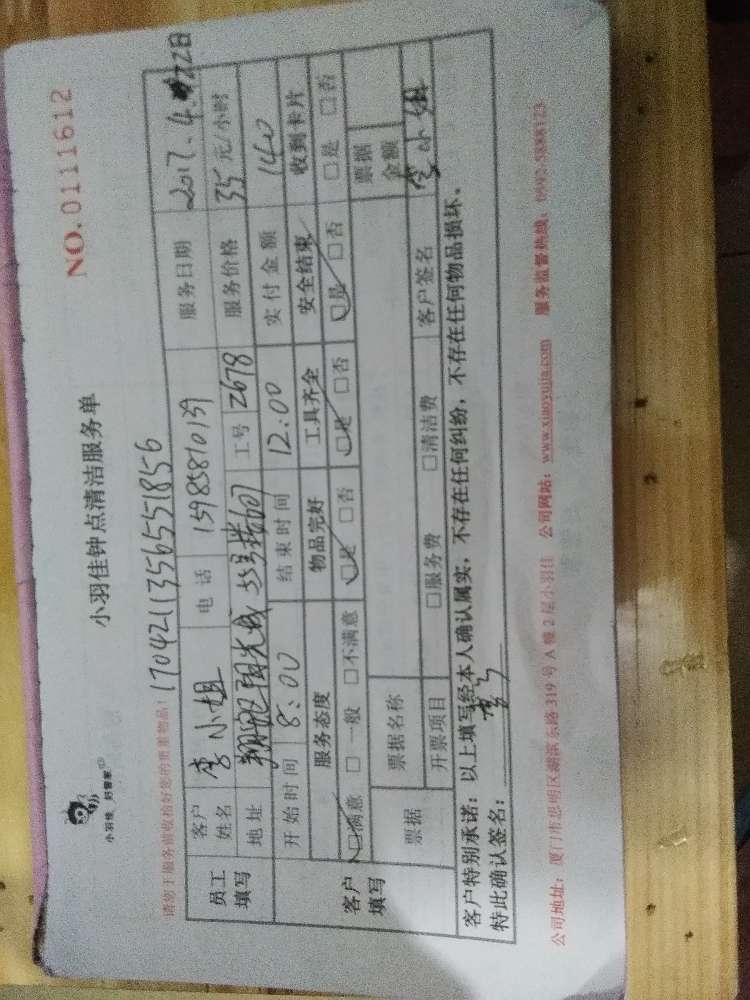 小羽佳 好管家
小羽佳钟点清洁服务单
NO.0111612
请您于服务前收检好您的贵重物品! 170421135655 1856
员工填写 客户姓名 李小姐 电话 15985810139 服务日期 2017.4.22日
地址 工号 2678 服务价格 35 元/小时
开始时间 8:00 结束时间 12:00 实付金额 140
客户填写 服务态度 物品完好 工具齐全 安全结束 收到卡片
☑满意 □一般 □不满意 ☑是 □否 ☑是 □否 ☑是 □否 □是 □否
票据 票据名称 票据金额
开票项目 □服务费 □清洁费 客户签名 李小姐
客户特别承诺:以上填写经本人确认属实,不存在任何纠纷,不存在任何物品损坏。
特此确认签名:
公司地址:厦门市思明区湖滨东路 319 号 A 幢 2 层小羽佳 公司网站:www.xiaoyujia.com 服务监督热线:0592-5888123